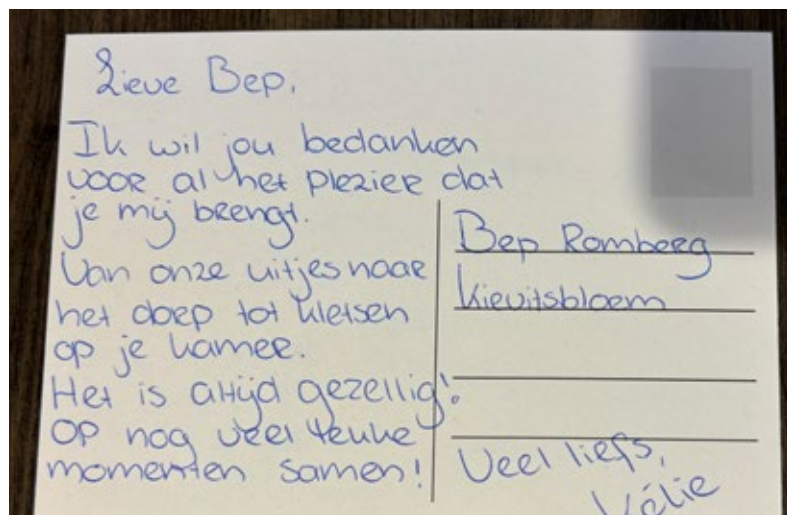 Lieve Bep,
Ik wil jou bedanken
voor al het plezier dat
je mij brengt.
Van onze uitjes naar
het dorp tot kletsen
op je kamer.
Het is altijd gezellig!
Op nog veel leuke
momenten samen!
Bep Romberg
Kievitsbloem
Veel liefs,